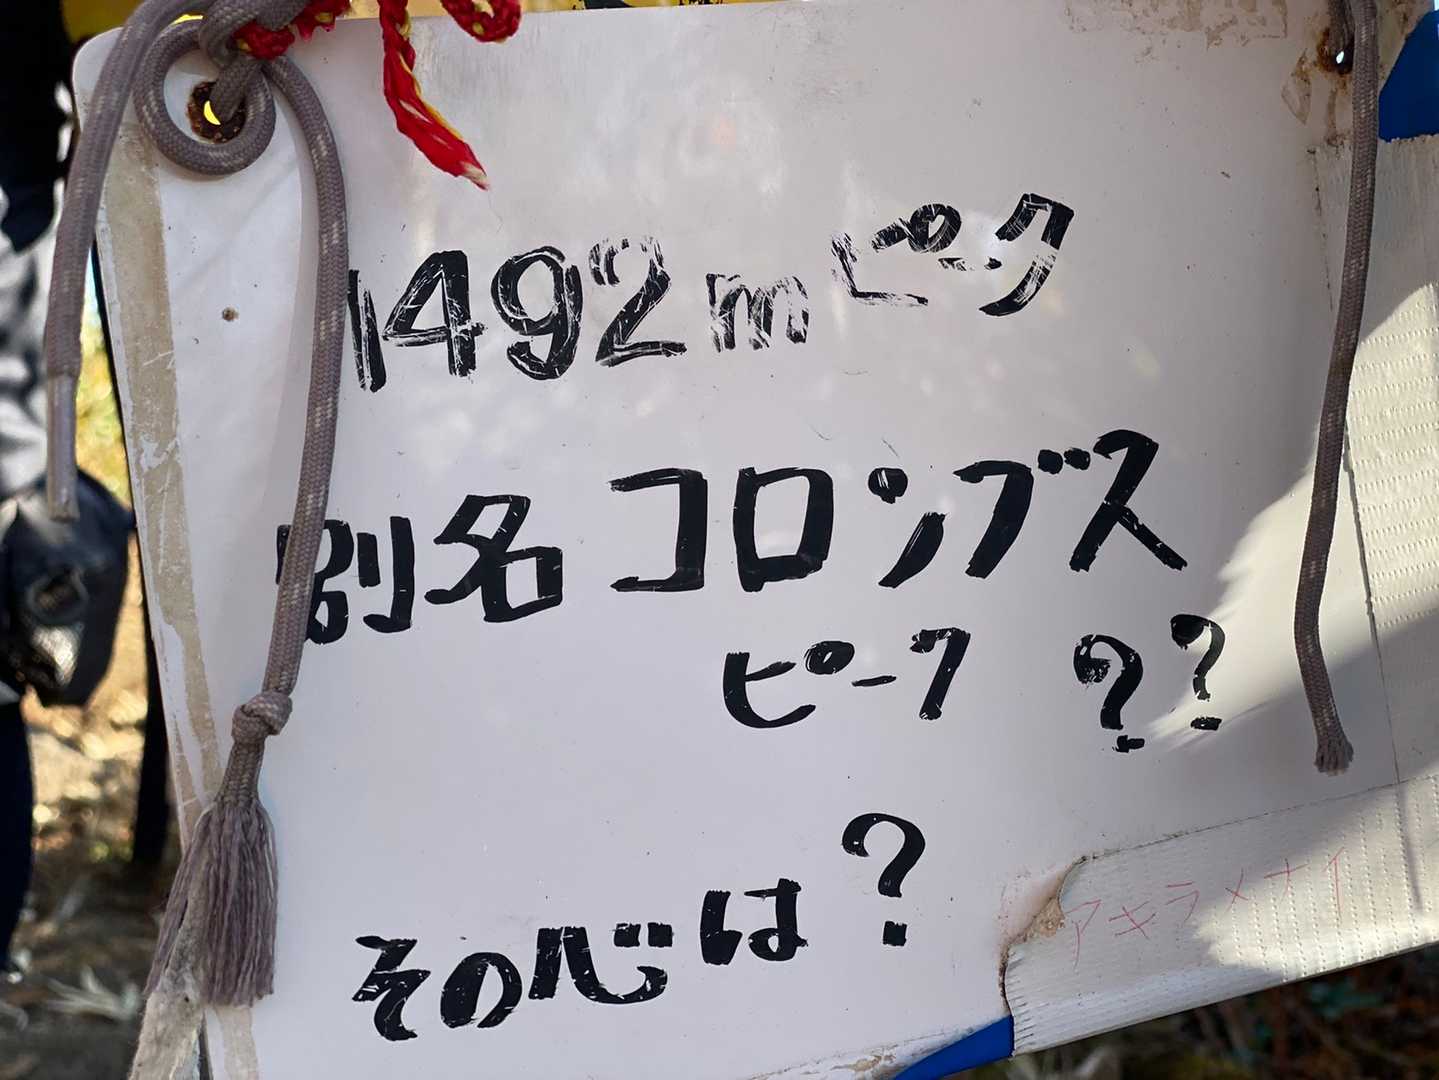 1492m ピーク
別名 コロンブス
ピーク ??
その心は?
アキラメナイ